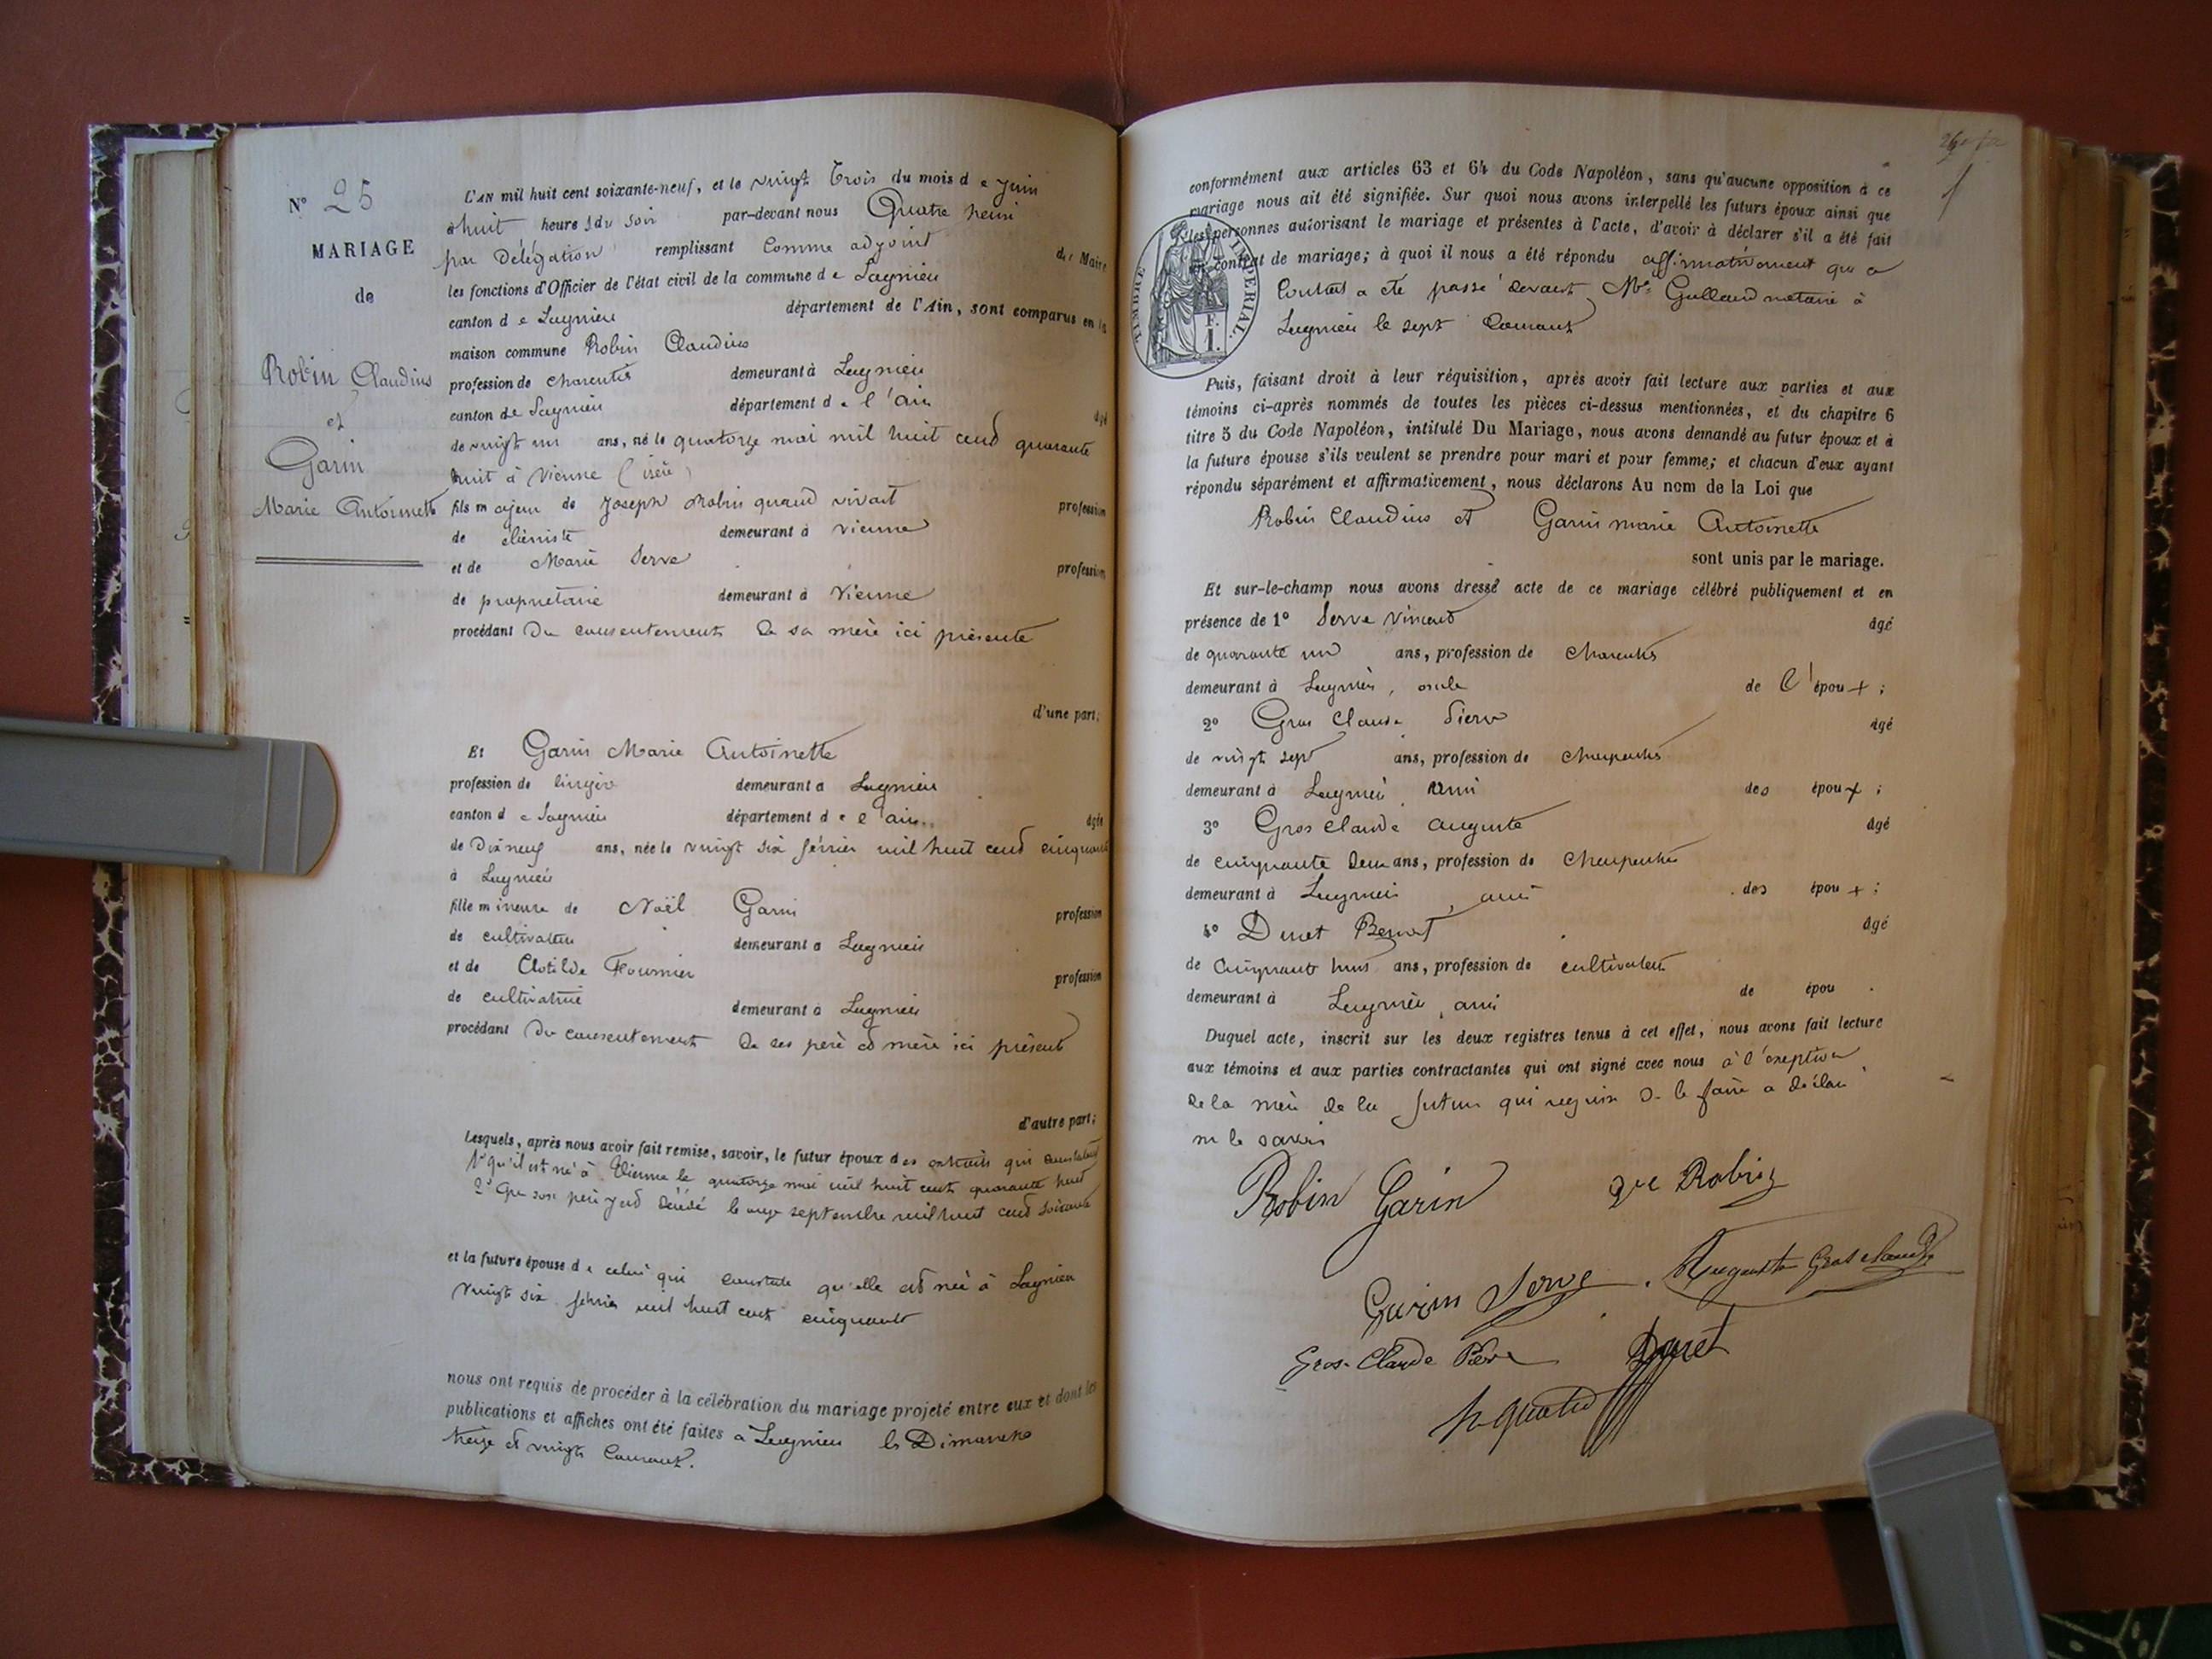 N° 25
MARIAGE
de
Robin Claudius
et
Garin
Marie Antoinette
L'AN mil huit cent soixante-neuf, et le vingt trois du mois de Juin
à huit heures du soir par-devant nous Quatre henri
par Délégation remplissant comme adjoint de Maire
les fonctions d'Officier de l'état civil de la commune de Lagnieu
canton de Lagnieu département de l'Ain, sont comparus en la
maison commune Robin Claudius
profession de charentier demeurant à Lagnieu
canton de Lagnieu département de l'ain âgé
de vingt un ans, né le quatorze mai mil huit cent quarante
huit à Vienne (isère)
fils majeur de Joseph Robin quand vivait profession
de ébéniste demeurant à Vienne
et de Marie Serve profession
de propriétaire demeurant à Vienne
procédant du consentement de sa mère ici présente
d'une part;
Et Garin Marie Antoinette
profession de lingère demeurant à Lagnieu
canton de Lagnieu département de l'ain âgée
de Dix neuf ans, née le vingt six février mil huit cent cinquante
à Lagnieu
fille mineure de Noël Garin profession
de cultivateur demeurant à Lagnieu
et de Clotilde Fournier profession
de cultivatrice demeurant à Lagnieu
procédant du consentement de ses père et mère ici présents
d'autre part;
Lesquels, après nous avoir fait remise, savoir, le futur époux des extraits qui constatent
1° qu'il est né à Vienne le quatorze mai mil huit cent quarante huit
2° Que son père y est décédé le onze septembre mil huit cent soixante
et la future épouse de celui qui constate qu'elle est née à Lagnieu
vingt six février mil huit cent cinquante
nous ont requis de procéder à la célébration du mariage projeté entre eux et dont les
publications et affiches ont été faites à Lagnieu les Dimanches
treize et vingt courant.
conformément aux articles 63 et 64 du Code Napoléon, sans qu'aucune opposition à ce
mariage nous ait été signifiée. Sur quoi nous avons interpellé les futurs époux ainsi que
les personnes autorisant le mariage et présentes à l'acte, d'avoir à déclarer s'il a été fait
un contrat de mariage; à quoi il nous a été répondu affirmativement que ce
Contrat a été passé devant Me notaire à
Lagnieu le sept Courant
TIMBRE IMPERIAL.
1 F.
Puis, faisant droit à leur réquisition, après avoir fait lecture aux parties et aux
témoins ci-après nommés de toutes les pièces ci-dessus mentionnées, et du chapitre 6
titre 5 du Code Napoléon, intitulé Du Mariage, nous avons demandé au futur époux et à
la future épouse s'ils veulent se prendre pour mari et pour femme; et chacun d'eux ayant
répondu séparément et affirmativement, nous déclarons Au nom de la Loi que
Robin Claudius et Garin marie Antoinette
sont unis par le mariage.
Et sur-le-champ nous avons dressé acte de ce mariage célébré publiquement et en
présence de 1° Serve Vincent âgé
de quarante un ans, profession de charentier
demeurant à Lagnieu, oncle de l'époux;
2° Gros Claude Pierre âgé
de vingt sept ans, profession de charpentier
demeurant à Lagnieu, ami des époux;
3° Gros claude auguste âgé
de cinquante deux ans, profession de charpentier
demeurant à Lagnieu, ami des époux;
4° Duret Benoit âgé
de cinquante huit ans, profession de cultivateur
demeurant à Lagnieu, ami de épou .
Duquel acte, inscrit sur les deux registres tenus à cet effet, nous avons fait lecture
aux témoins et aux parties contractantes qui ont signé avec nous à l'exeption
de la mère de la future qui requise de le faire a déclaré
ne le savoir
Robin Garin Robin
Garin Serve Auguste Gros claude
Gros-Claude Pierre Duret
h quatre